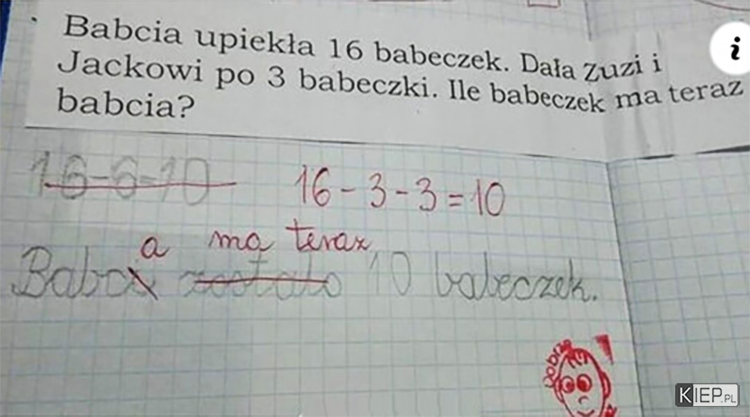 Babcia upiekła 16 babeczek. Dała Zuzi i
Jackowi po 3 babeczki. Ile babeczek ma teraz
babcia?
i
16-6=10
16-3-3=10
a ma teraz
Babci zostało 10 babeczek.
Dobrze
KIEP.PL